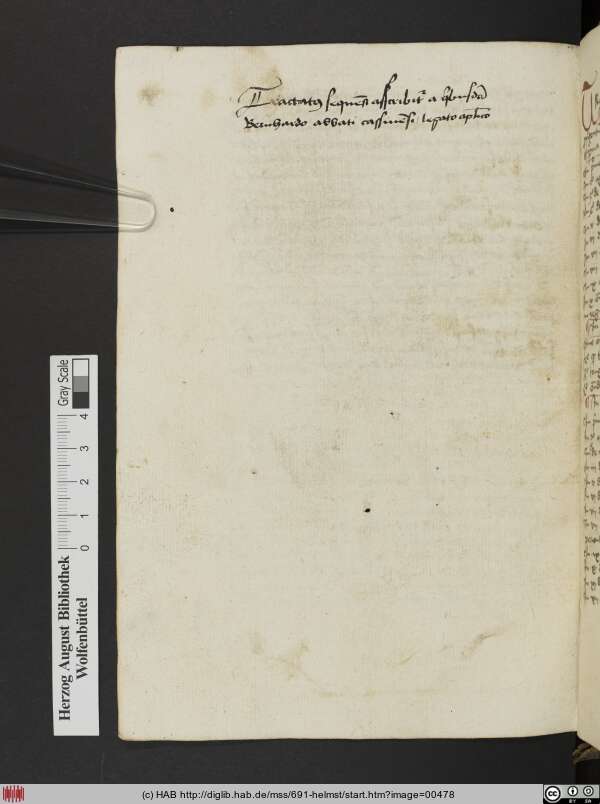 Tractatus sequens asscribitur a quibusdam
Bernhardo abbati cassinensi legato aplico
Herzog August Bibliothek
Wolfenbüttel
Gray Scale
0 1 2 3 4
(c) HAB http://diglib.hab.de/mss/691-helmst/start.htm?image=00478
CC BY SA